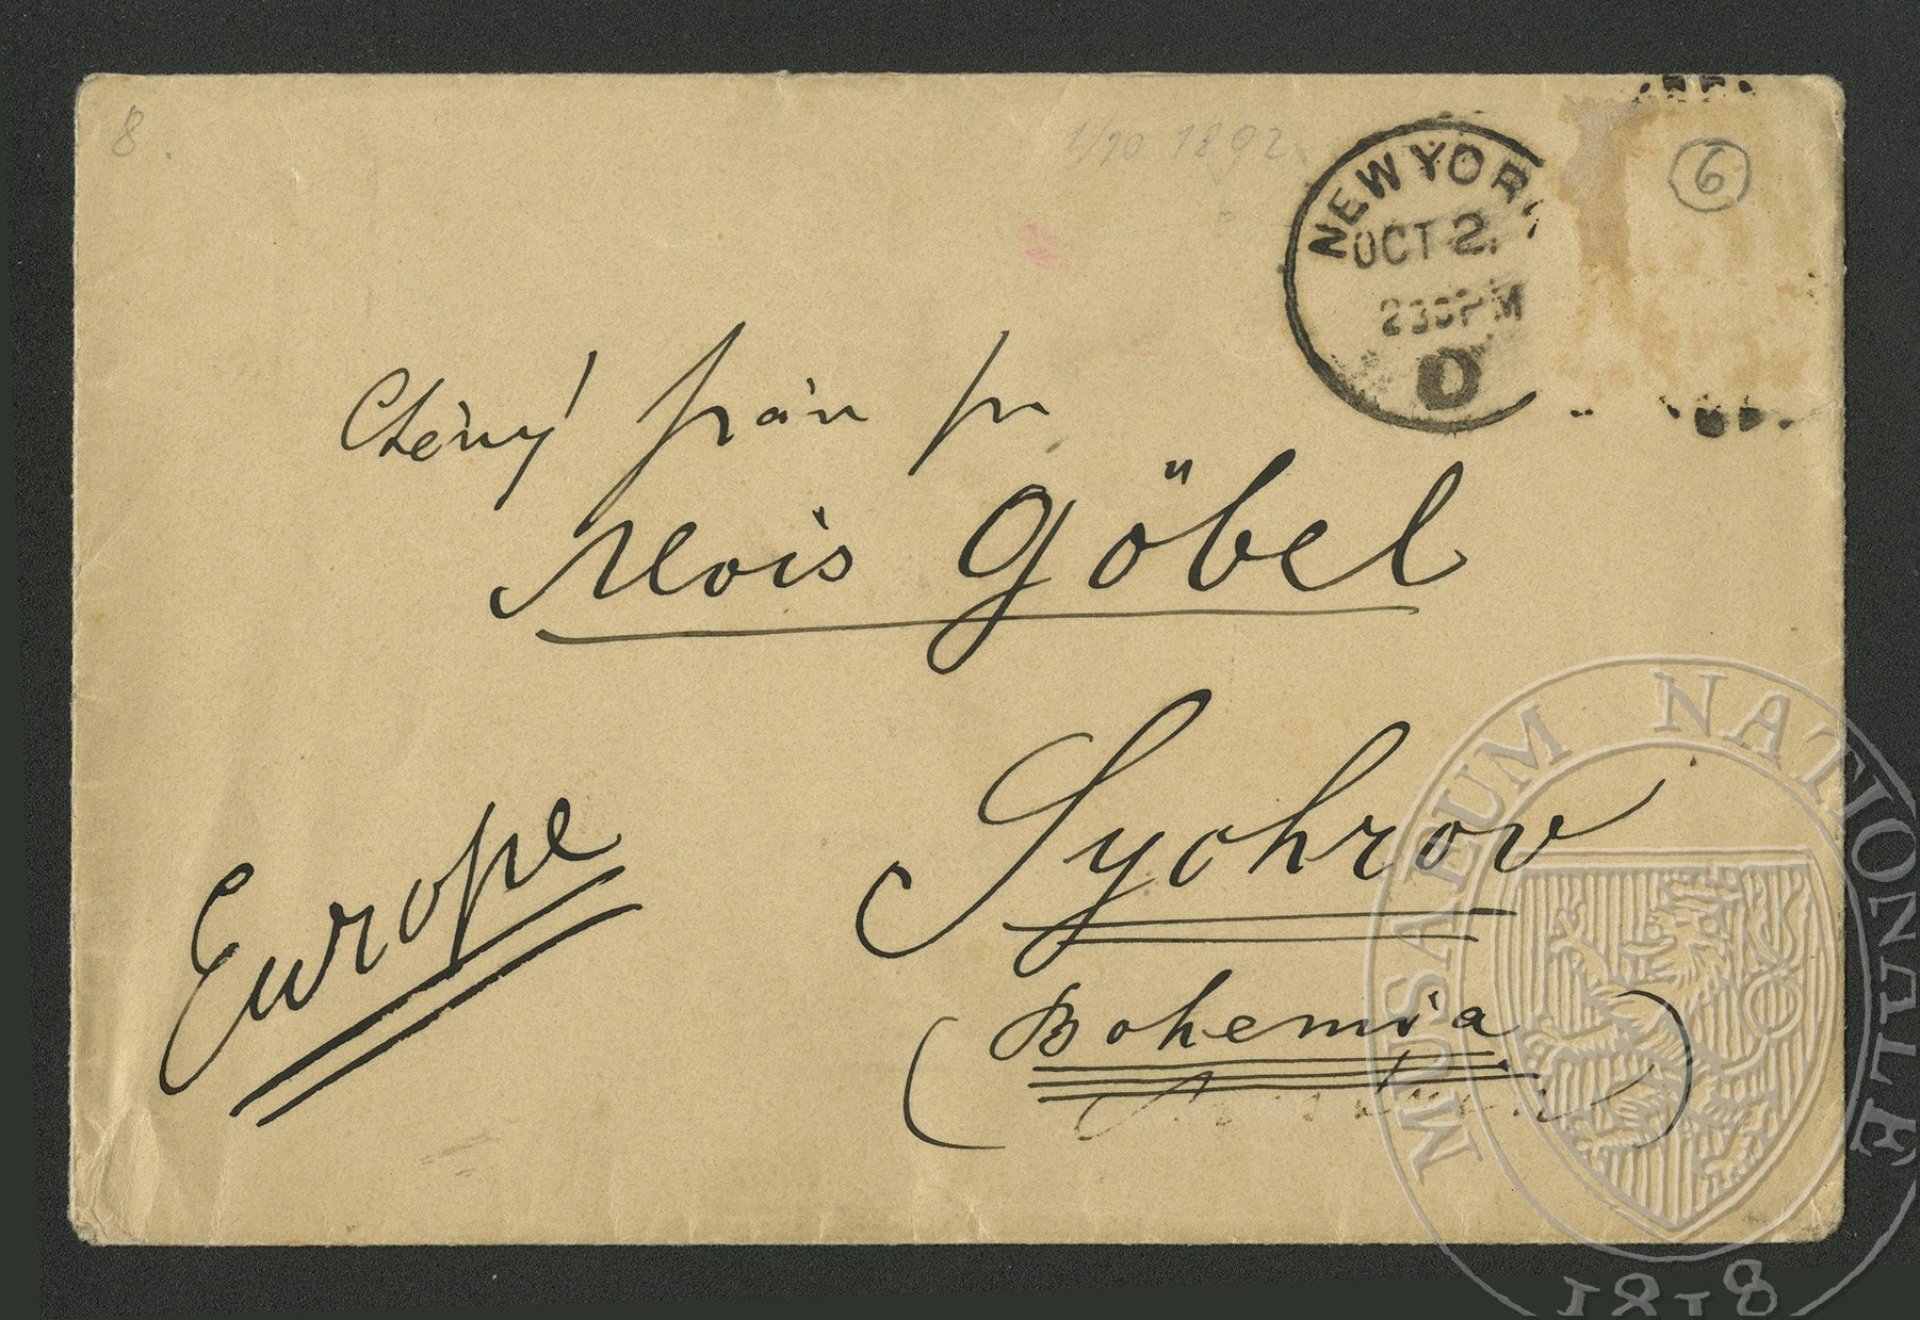 8.
1/10 1892
6
NEW YORK
OCT 2.
230PM
D
Ctěný pán pn
Alois Göbel
Sychrov
(Bohemia)
Europe
MUSAEUM NATIONALE
1818